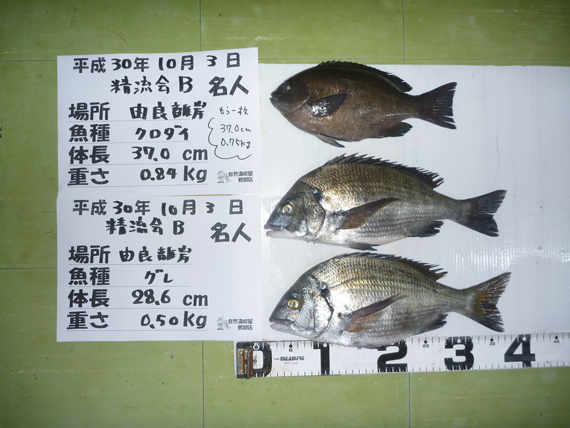 平成 30年 10月 3日
精流会B 名人
場所 由良離岸
魚種 クロダイ
体長 37.0 cm
重さ 0.84 kg
もう一枚
37.0cm
0.75kg
平成 30年 10月 3日
精流会B 名人
場所 由良離岸
魚種 グレ
体長 28.6 cm
重さ 0.50 kg
0 1 2 3 4